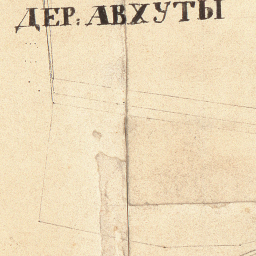 ДЕР: АВХУТЫ